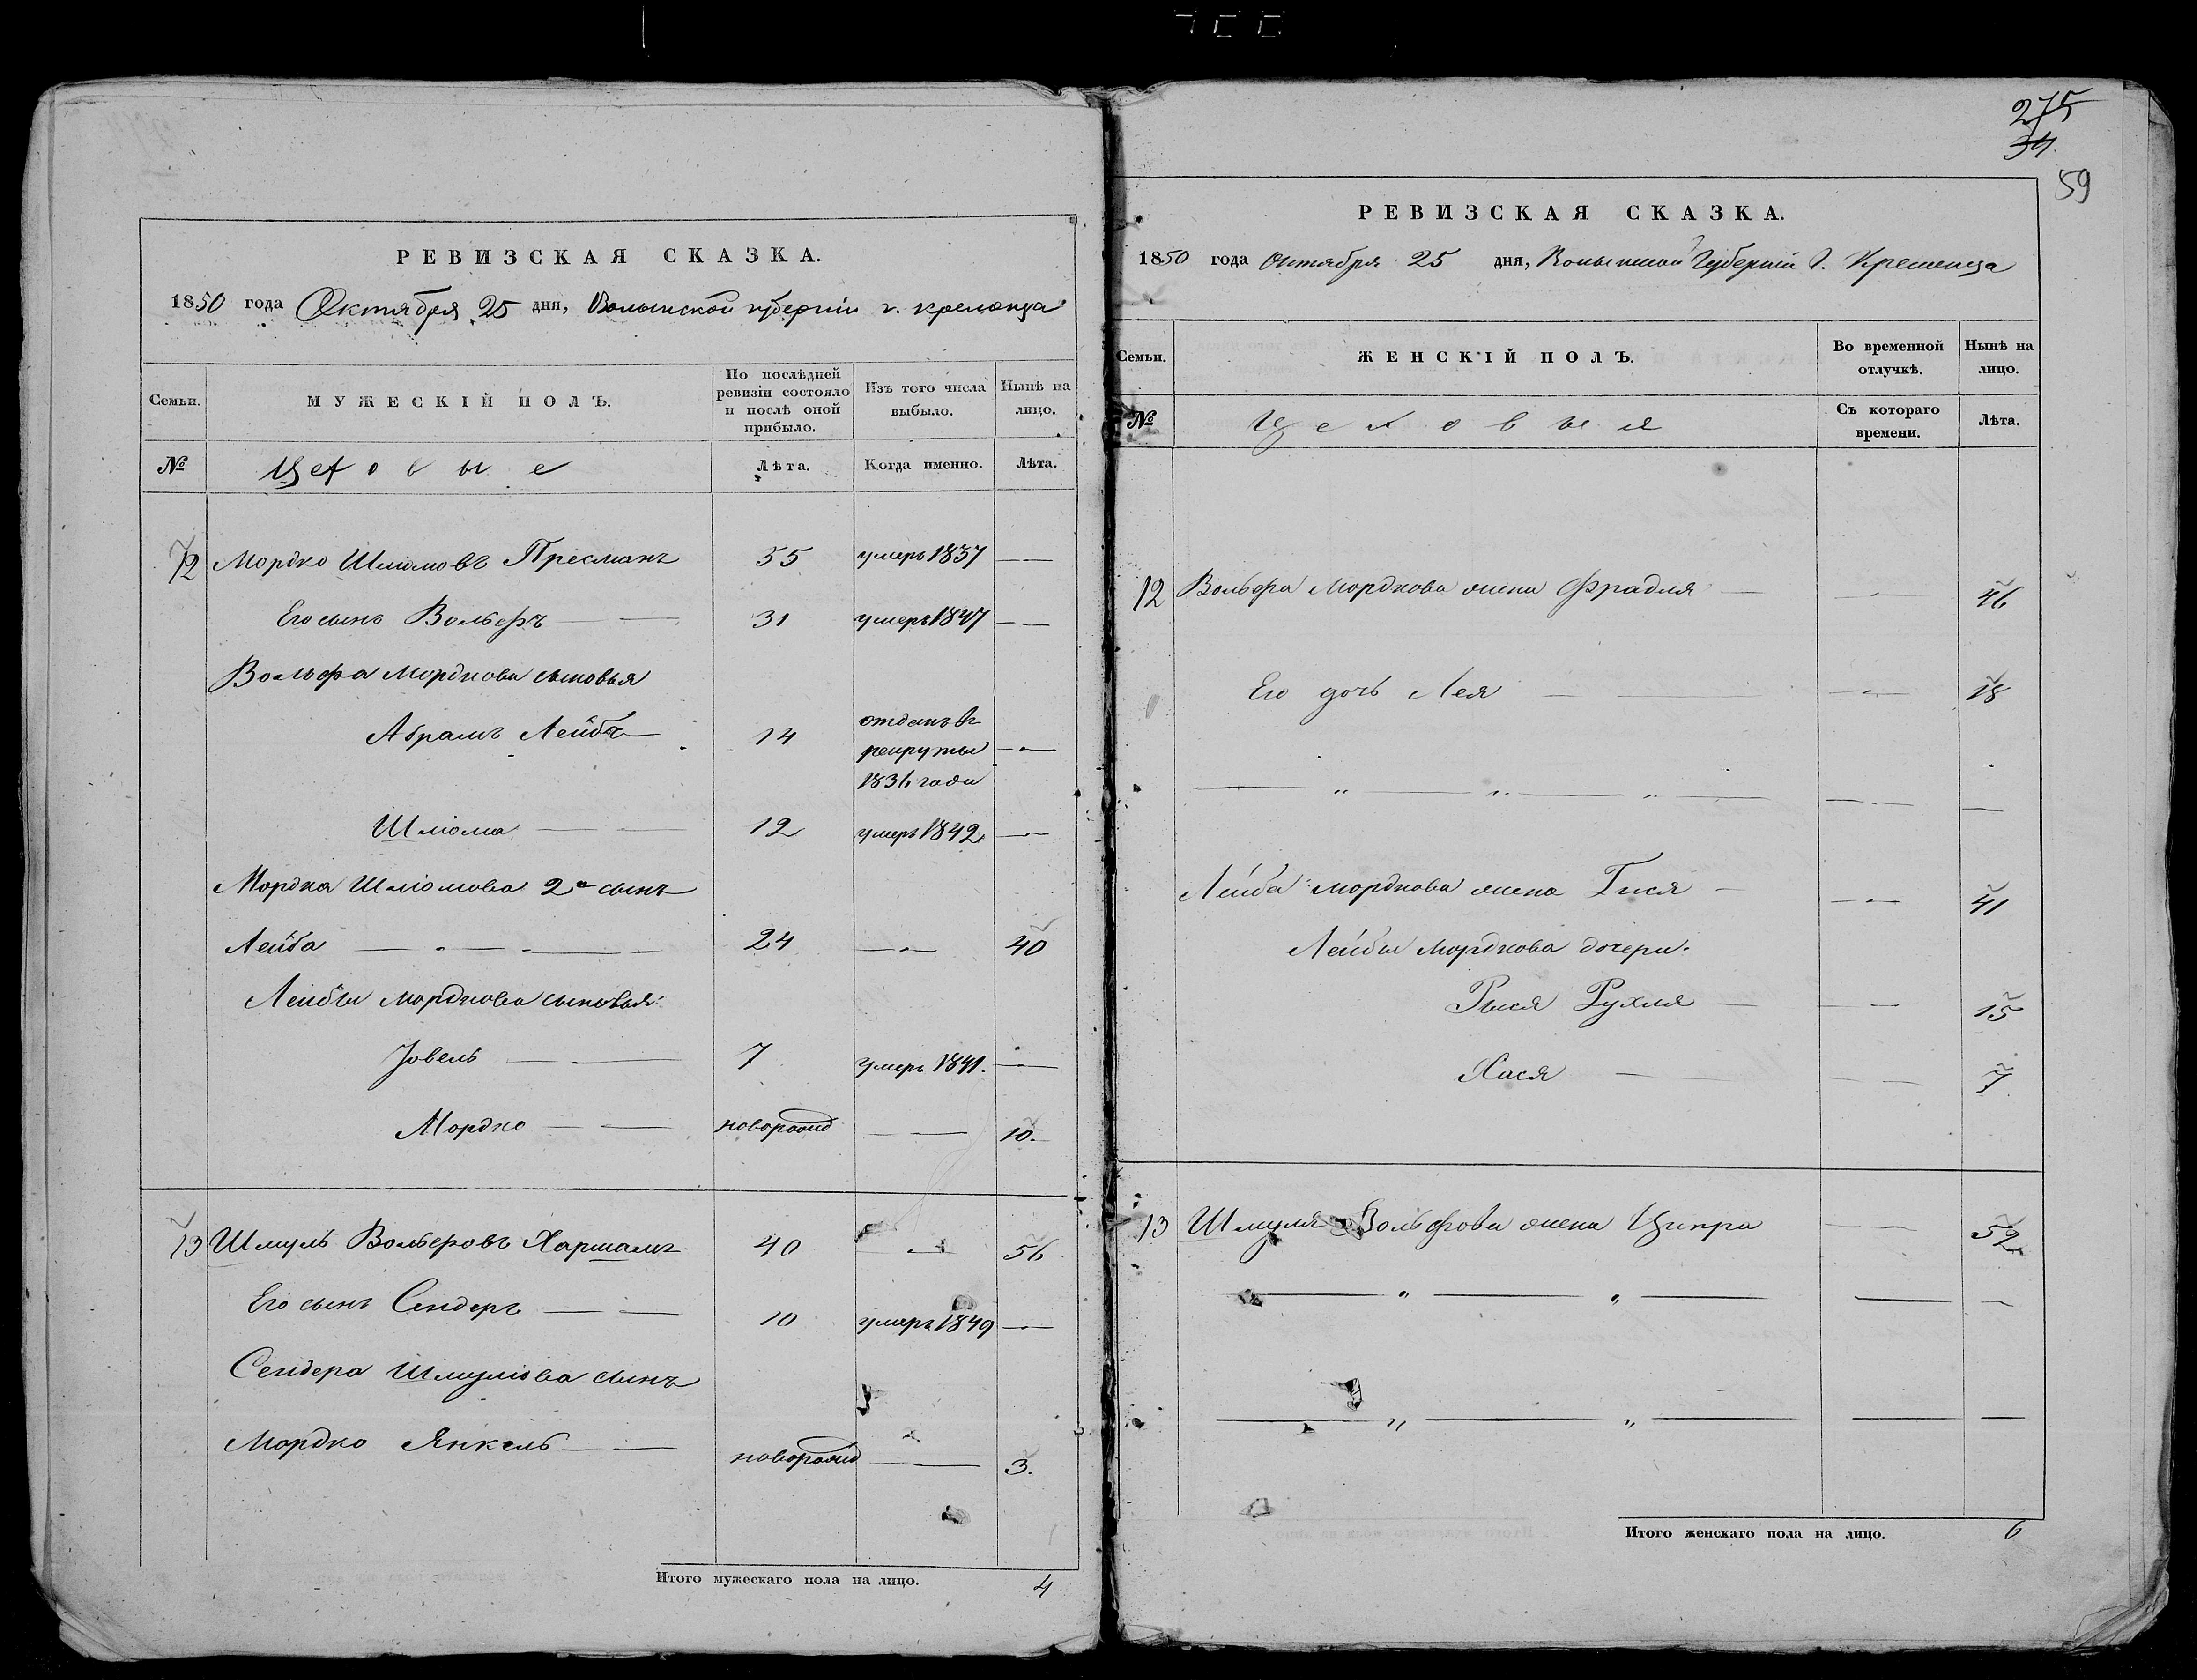 РЕВИЗСКАЯ СКАЗКА.
1850 года Октября 25 дня, Волынской губерніи г. Кременца
Семьи.
МУЖЕСКІЙ ПОЛЪ.
По послѣдней ревизіи состояло и послѣ оной прибыло.
Изъ того числа выбыло.
Нынѣ на лицо.
№
Цеховые
Лѣта.
Когда именно.
Лѣта.
12 Мордко Шліомовъ Пресманъ 55 умеръ 1837 — —
Его сынъ Вольфъ — — 31 умеръ 1847 — —
Вольфа Мордкова сыновья
Абрамъ Лейба — 14 отданъ въ
рекруты — —
1836 года
Шліома — — 12 умеръ 1842 — —
Мордка Шліомова 2й сынъ
Лейба — " — " — — 24 — " — 40
Лейбы Мордкова сыновья:
Іовель — — 7 умеръ 1841. — —
Мордко — — новорожд — — 10.
13 Шмуль Вольфовъ Харшамъ 40 — " — 56
Его сынъ Сендеръ — — 10 умеръ 1849 — —
Сендера Шмулiова сынъ
Мордко Янкель — — новорожд — — 3.
Итого мужескаго пола на лицо. 4
275
34
59
РЕВИЗСКАЯ СКАЗКА.
1850 года Октября 25 дня, Волынской Губерніи Г. Кременца
Семьи.
ЖЕНСКІЙ ПОЛЪ.
Во временной отлучкѣ.
Нынѣ на лицо.
№
Цеховыя
Съ котораго времени.
Лѣта.
12 Вольфа Мордкова жена Фрадля — — " — 46
Его дочь Лея — — — " — 18
— " — " — " — — — —
Лейба Мордкова жена Гися — — " — 41
Лейбы Мордкова дочери:
Рыся Рухля — — — 15
Хася — — — 7
13 Шмуля Вольфова жена Ципра — — 52
— " — " — — —
— " — " — — —
Итого женскаго пола на лицо. 6